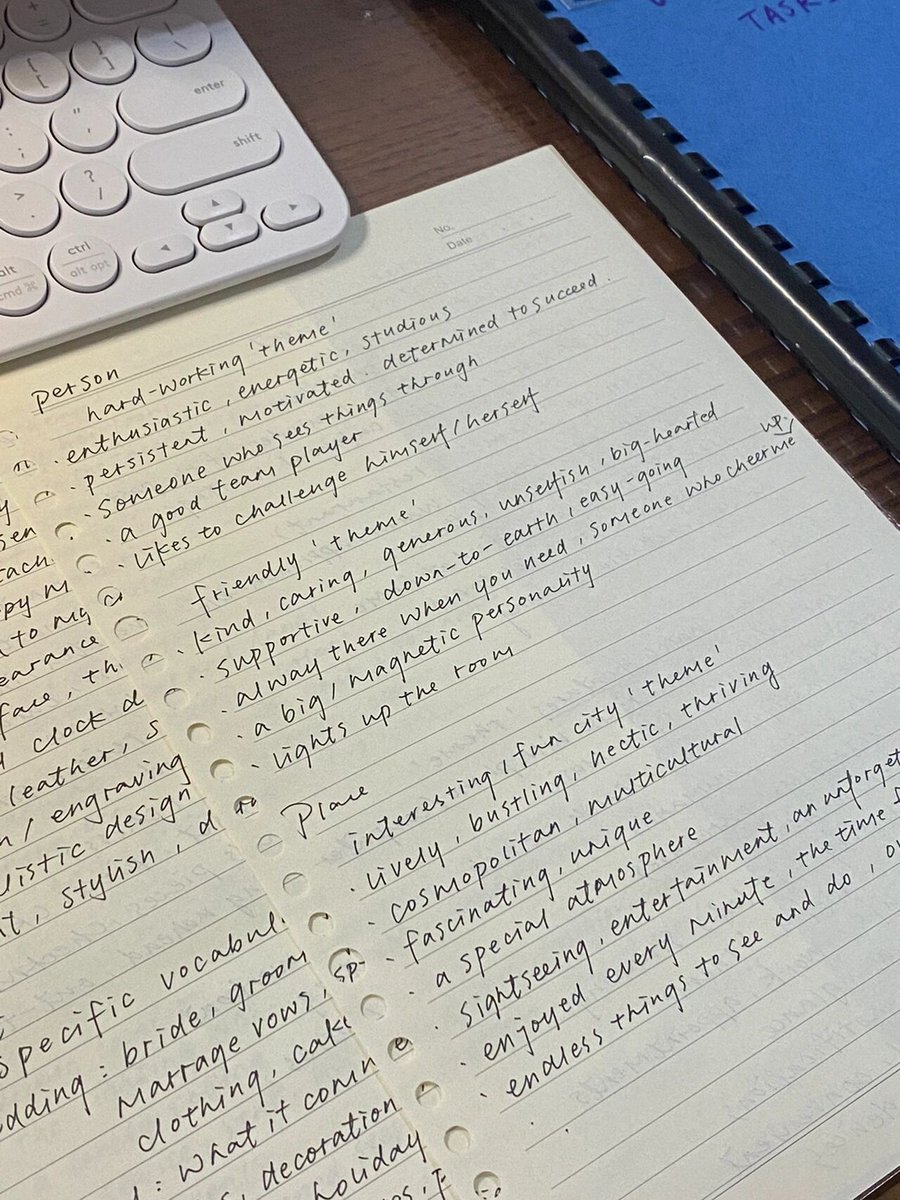 TASK
enter
shift
ctrl
alt opt
alt
cmd ⌘
No.
Date
person
hard-working 'theme'
· enthusiastic, energetic, studious
· persistent, motivated. determined to succeed.
· someone who sees things through
· a good team player
· likes to challenge himself/herself
friendly 'theme'
· kind, caring, generous, unselfish, big-hearted
· supportive, down-to-earth, easy-going
· alway there when you need, someone who cheer me up
· a big/magnetic personality
· lights up the room
Place
interesting/fun city 'theme'
· lively, bustling, hectic, thriving
· cosmopolitan, multicultural
· fascinating, unique
· a special atmosphere
· sightseeing, entertainment, an unforget
· enjoyed every minute, the time
· endless things to see and do,
to my
face, th
clock d
leather, s
/ engraving
design
, stylish, d
specific vocabul
dding : bride, groom
Marrage vows, sp
clothing, cake
: what it comm
, decoration
holiday